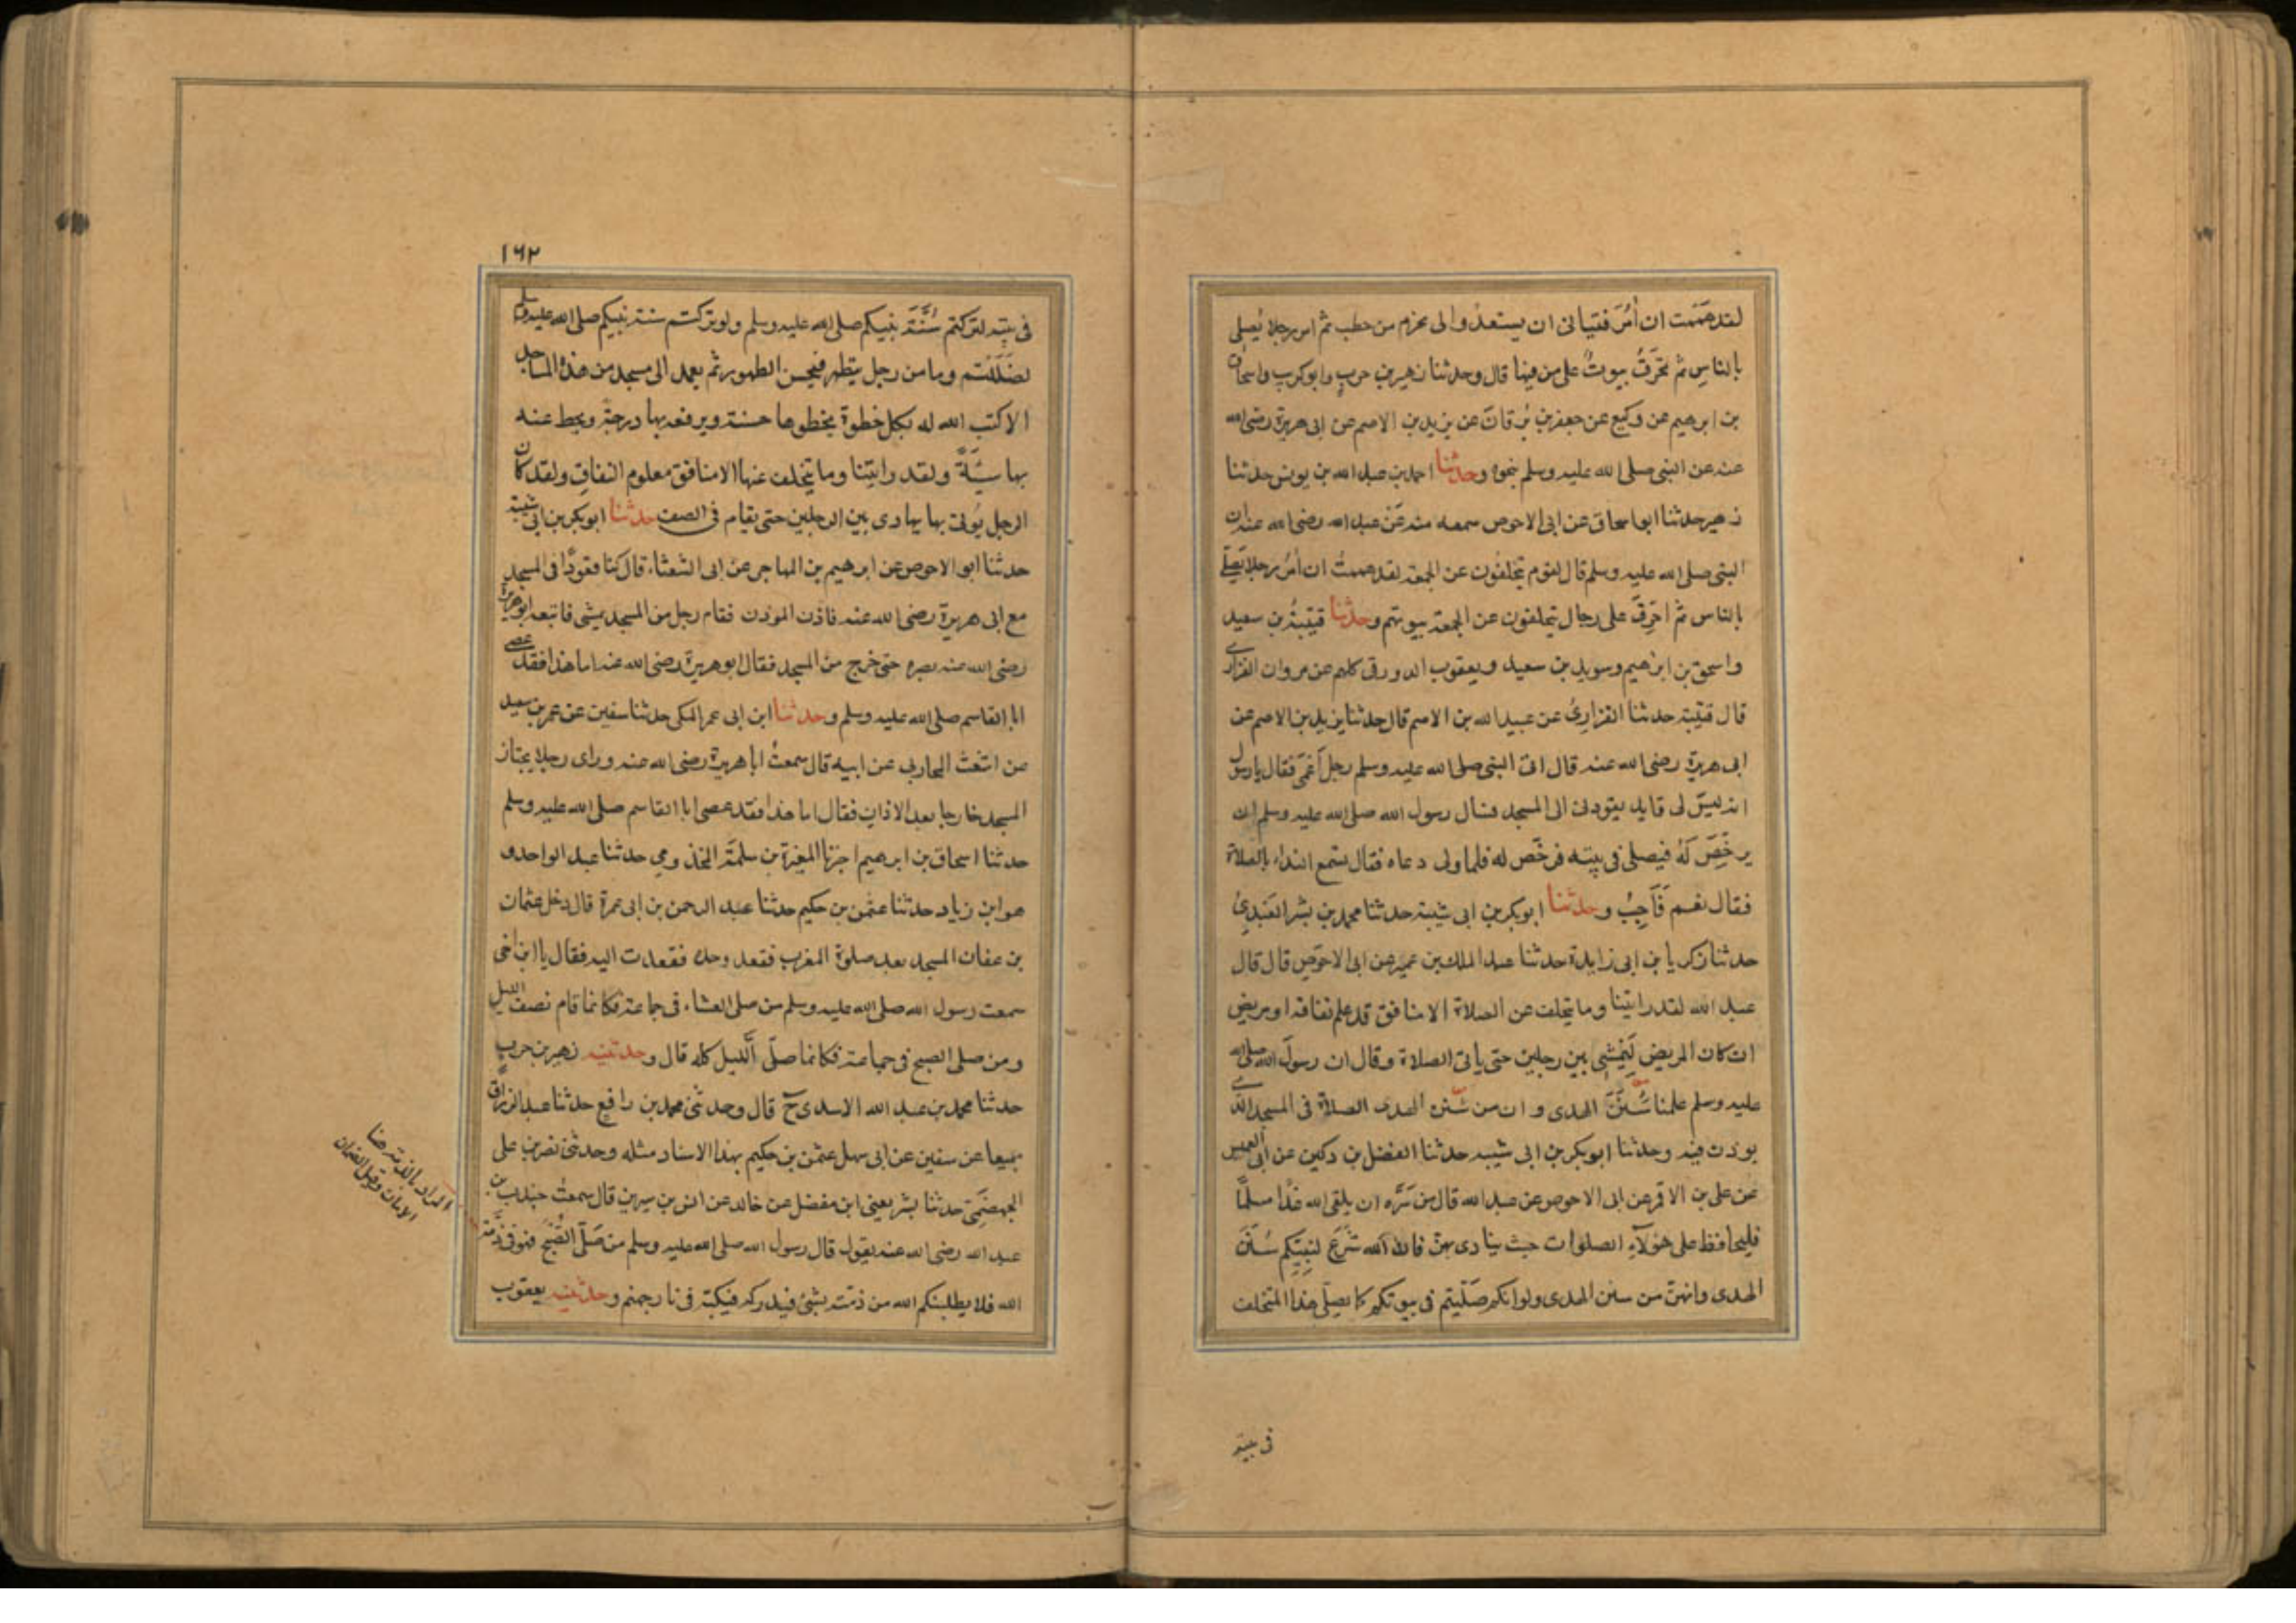 لقد هممت ان آمُرَ فتياني ان يستعدوا الى بحزم من حطب ثم امر رجلا يُصلى
بالناسِ ثم تحَرقُ بيوتٌ على من فيها قال وحدثنا زهير بن حربٍ وابو كريب واسحاق
بن ابرهيم عن وكيع عن جعفر بن بُرقان عن يزيد بن الاصم عن ابى هريرة رضى الله
عنه عن النبى صلى الله عليه وسلم بنحوه وحدثنا احمد بن عبد الله بن يونس حدثنا
زهير حدثنا ابو اسحاق عن ابى الاحوص سمعه منه عَن عبد الله رضى الله عنه ان
النبى صلى الله عليه وسلم قال لقوم يتخلفون عن الجمعة لقد هممتُ ان آمُرَ رجلا يصَلّى
بالناس ثم احَرِقَ على رجال يتخلفون عن الجمعة بيوتهم وحدثنا قتيبةُ بن سعيد
واسحق بن ابرهيم وسويد بن سعيد ويعقوب الدورقى كلهم عن مروان الفزارى
قال قتيبة حدثنا الفزارىُ عن عبيد الله بن الاصم قال حدثنا يزيد بن الاصم عن
ابى هريرة رضى الله عنه قال اتى النبى صلى الله عليه وسلم رجل اَعْمَى فقال يا رسول
انه ليسَ لى قايد يقودنى الى المسجد فسال رسول الله صلى الله عليه وسلم ان
يرخِّصَ لَهُ فيصلى فى بيته فرخّص له فلما ولى دعاه فقال تسمع النداء بالصلاة
فقال نعم فَاَجِبْ وحدثنا ابو بكر بن ابى شيبة حدثنا محمد بن بشر العَبْدِىُ
حدثنا زكريا بن ابى زايدة حدثنا عبد الملك بن عمير عن ابى الاحوَصِ قال قال
عبد الله لقد رايتنا وما يتخلف عن الصلاة الا منافق قد علم نفاقه او مريض
ان كان المريض لَيَمْشِى بين رجلين حتى ياتى الصلاة وقال ان رسولَ الله صلى الله
عليه وسلم علمنا سُنَنَ الهدى وان من سُنَن الهدى الصلاة فى المسجد الذى
يوذن فيه وحدثنا ابو بكر بن ابى شيبه حدثنا الفضل بن دكين عن ابى العميس
عن على بن الاقمر عن ابى الاحوص عن عبد الله قال من سَرَّه ان يلقى الله غدًا مسلمًا
فليحافظ على هَوُلآءِ الصلوات حيث ينادى بهنّ فان الله شَرَعَ لِنَبِيّكم سُنَنَ
الهدى وانهنّ من سنن الهدى ولو انكم صَلّيتم فى بيوتكم كما يصلّى هذا المتخلف
فى بيته
١٦٢
فى بيته لتركتم سُنَّةَ نبيكم صلى الله عليه وسلم ولو تركتم سنة نبيكم صلى الله عليه وسلم
لضَلَلتُم وما من رجل يتطهر فيحسن الطهور ثم يعمد الى مسجد من هذهُ المساجد
الا كتب الله له بكل خطوة يخطوها حسنة ويرفعه بها درجة ويحط عنه
بها سَيّئةً ولقد رايتنا وما يتخلف عنها الا منافق معلوم النفاقِ ولقد كان
الرجل يُوتى بها يهادى بين الرجلين حتى يقام فى الصف حدثنا ابو بكر بن ابى شيبة
حدثنا ابو الاحوص عن ابرهيم بن المهاجر عن ابى الشعثاء قال كنا قعودًا فى المسجد
مع ابى هريرة رضى الله عنه فاذن الموذن فقام رجل من المسجد يمشى فاتبعه ابو هريرة
رضى الله عنه بصره حتى خرج من المسجد فقال ابو هريرة رضى الله عنه اما هذا فقد عصى
ابا القاسم صلى الله عليه وسلم وحدثنا ابن ابى عمر المكى حدثنا سفين عن عمر بن سعيد
عن اشعث المحاربى عن ابيه قال سمعتُ ابا هريرة رضى الله عنه وراى رجلا يجتاز
المسجد خارجا بعد الاذان فقال اما هذا فقد عصى ابا القاسم صلى الله عليه وسلم
حدثنا اسحاق بن ابرهيم اخبرنا المغيرة بن سلمةَ المخذومى حدثنا عبد الواحد و
هو ابن زياد حدثنا عثمن بن حكيم حدثنا عبد الرحمن بن ابى عمرة قال دخل عثمان
بن عفان المسجد بعد صلوة المغرب فقعد وحده فقعدت اليه فقال يا ابن اخى
سمعت رسول الله صلى الله عليه وسلم من صلى العشاء فى جماعة فكانما قام نصف الليل
ومن صلى الصبح فى جماعة فكانما صلّى اَللّيل كله قال وحدثنيه زهير بن حربٍ
حدثنا محمد بن عبد الله الاسدى ح قال وحدثنى محمد بن رافع حدثنا عبد الرزاق
جميعا عن سفين عن ابى سهل عثمن بن حكيم بهذا الاسناد مثله وحدثنى نصر بن على
الجهضَمِى حدثنا بشر يعنى ابن مفضل عن خالد عن انس بن سيرين قال سمعتُ جندب بن
عبد الله رضى الله عنه يقول قال رسول الله صلى الله عليه وسلم من صَلّى الصُّبْحَ فهو فى ذمّة
الله فلا يطلبنكم الله من ذمّته بشىٔ فيدركه فيكبّه فى نار جهنم وحدثنيه يعقوب
المراد بالذمة هنا
الامان وقيل الضمان